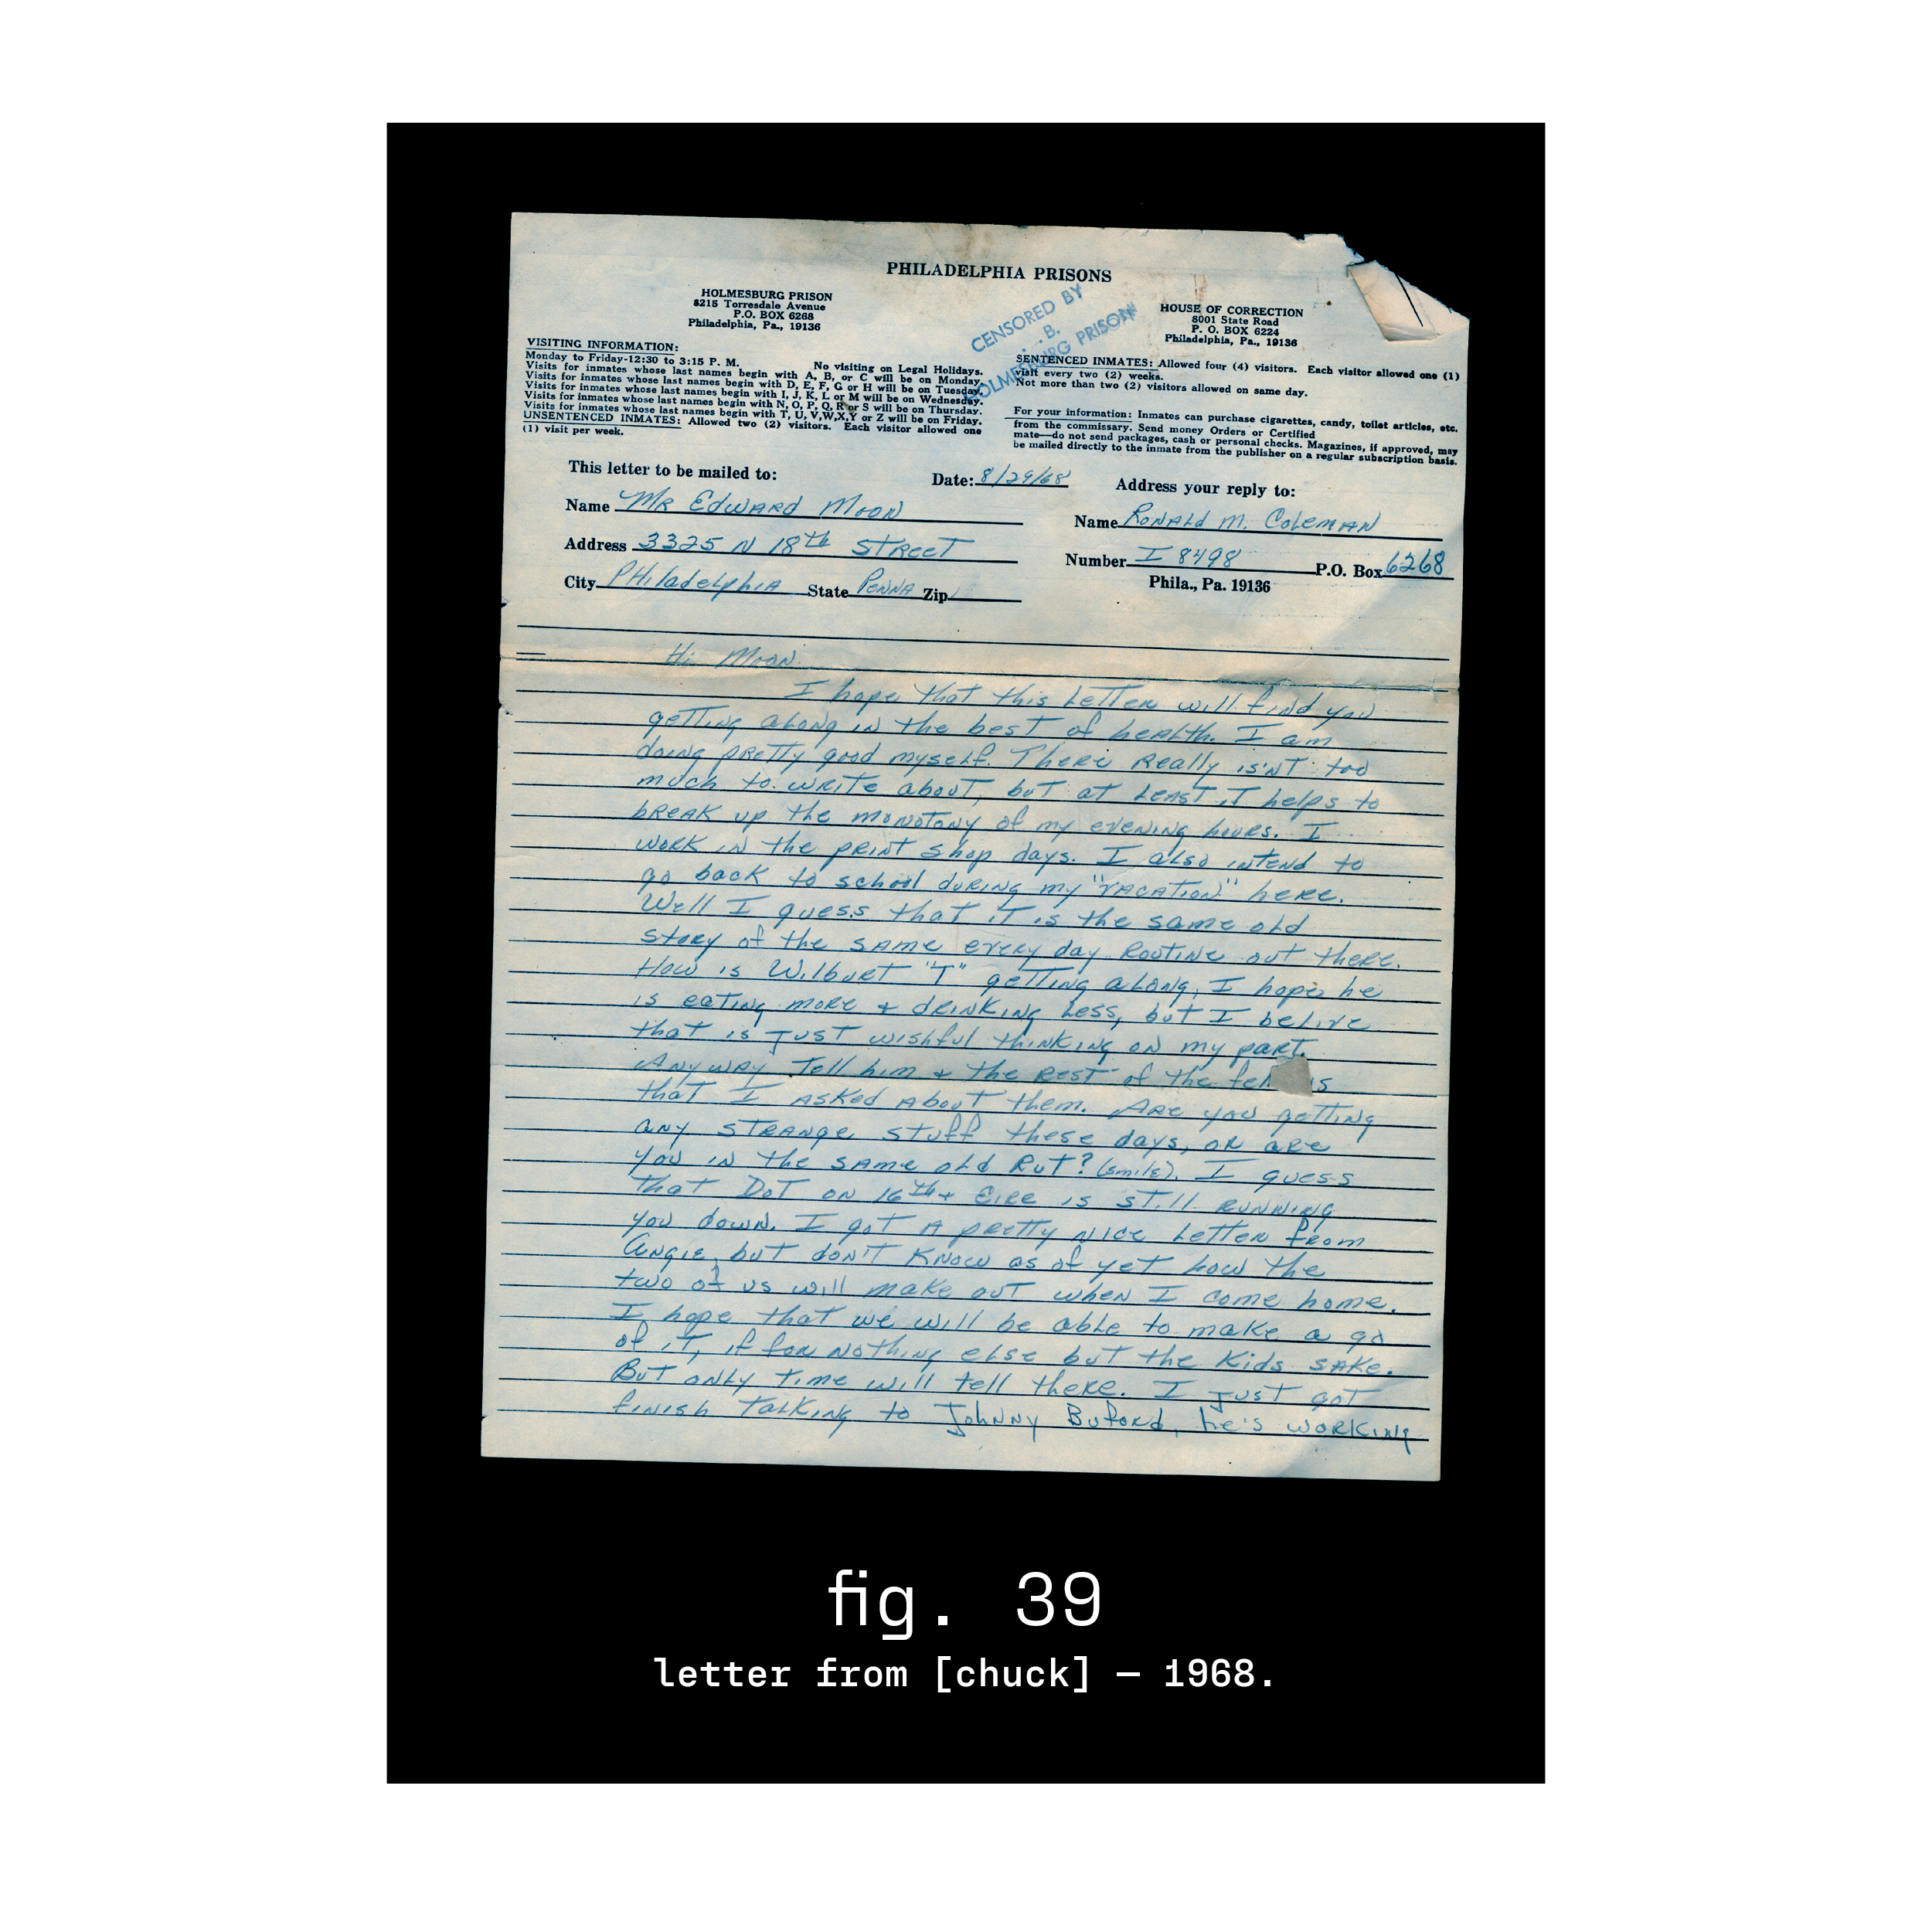 PHILADELPHIA PRISONS
HOLMESBURG PRISON
8215 Torresdale Avenue
P.O. BOX 6268
Philadelphia, Pa., 19136
CENSORED BY
B.
HOLMESBURG PRISON
HOUSE OF CORRECTION
8001 State Road
P. O. BOX 6224
Philadelphia, Pa., 19136
VISITING INFORMATION:
Monday to Friday-12:30 to 3:15 P. M. No visiting on Legal Holidays.
Visits for inmates whose last names begin with A, B, or C will be on Monday.
Visits for inmates whose last names begin with D, E, F, G or H will be on Tuesday.
Visits for inmates whose last names begin with I, J, K, L or M will be on Wednesday.
Visits for inmates whose last names begin with N, O, P, Q, R or S will be on Thursday.
Visits for inmates whose last names begin with T, U, V,W,X,Y or Z will be on Friday.
UNSENTENCED INMATES: Allowed two (2) visitors. Each visitor allowed one
(1) visit per week.
SENTENCED INMATES: Allowed four (4) visitors. Each visitor allowed one (1)
visit every two (2) weeks.
Not more than two (2) visitors allowed on same day.
For your information: Inmates can purchase cigarettes, candy, toilet articles, etc.
from the commissary. Send money Orders or Certified
mate—do not send packages, cash or personal checks. Magazines, if approved, may
be mailed directly to the inmate from the publisher on a regular subscription basis.
This letter to be mailed to:
Date: 8/29/68
Name Mr Edward Moon
Address 3325 N 18th Street
City Philadelphia State Penna Zip
Address your reply to:
Name Ronald M. Coleman
Number I 8498 P.O. Box 6268
Phila., Pa. 19136
Hi Moon
I hope that this Letter will find you
getting along in the best of health. I am
doing pretty good myself. There really is'nt too
much to write about, but at least it helps to
break up the monotony of my evening hours. I
work in the print shop days. I also intend to
go back to school during my "vacation" here.
Well I guess that it is the same old
story of the same every day routine out there.
How is Wilburt "T" getting along, I hope he
is eating more & drinking less, but I belive
that is just wishful thinking on my part.
Anyway tell him & the rest of the
that I asked about them. Are you getting
any strange stuff these days, or are
you in the same old rut? (smile). I guess
that Dot on 16th & Eire is still running
you down. I got a pretty nice letter from
Angie, but don't know as of yet how the
two of us will make out when I come home.
I hope that we will be able to make a go
of it, if for nothing else but the kids sake.
But only time will tell there. I just got
finish talking to Johnny Buford, he's working
fig. 39
letter from [chuck] — 1968.